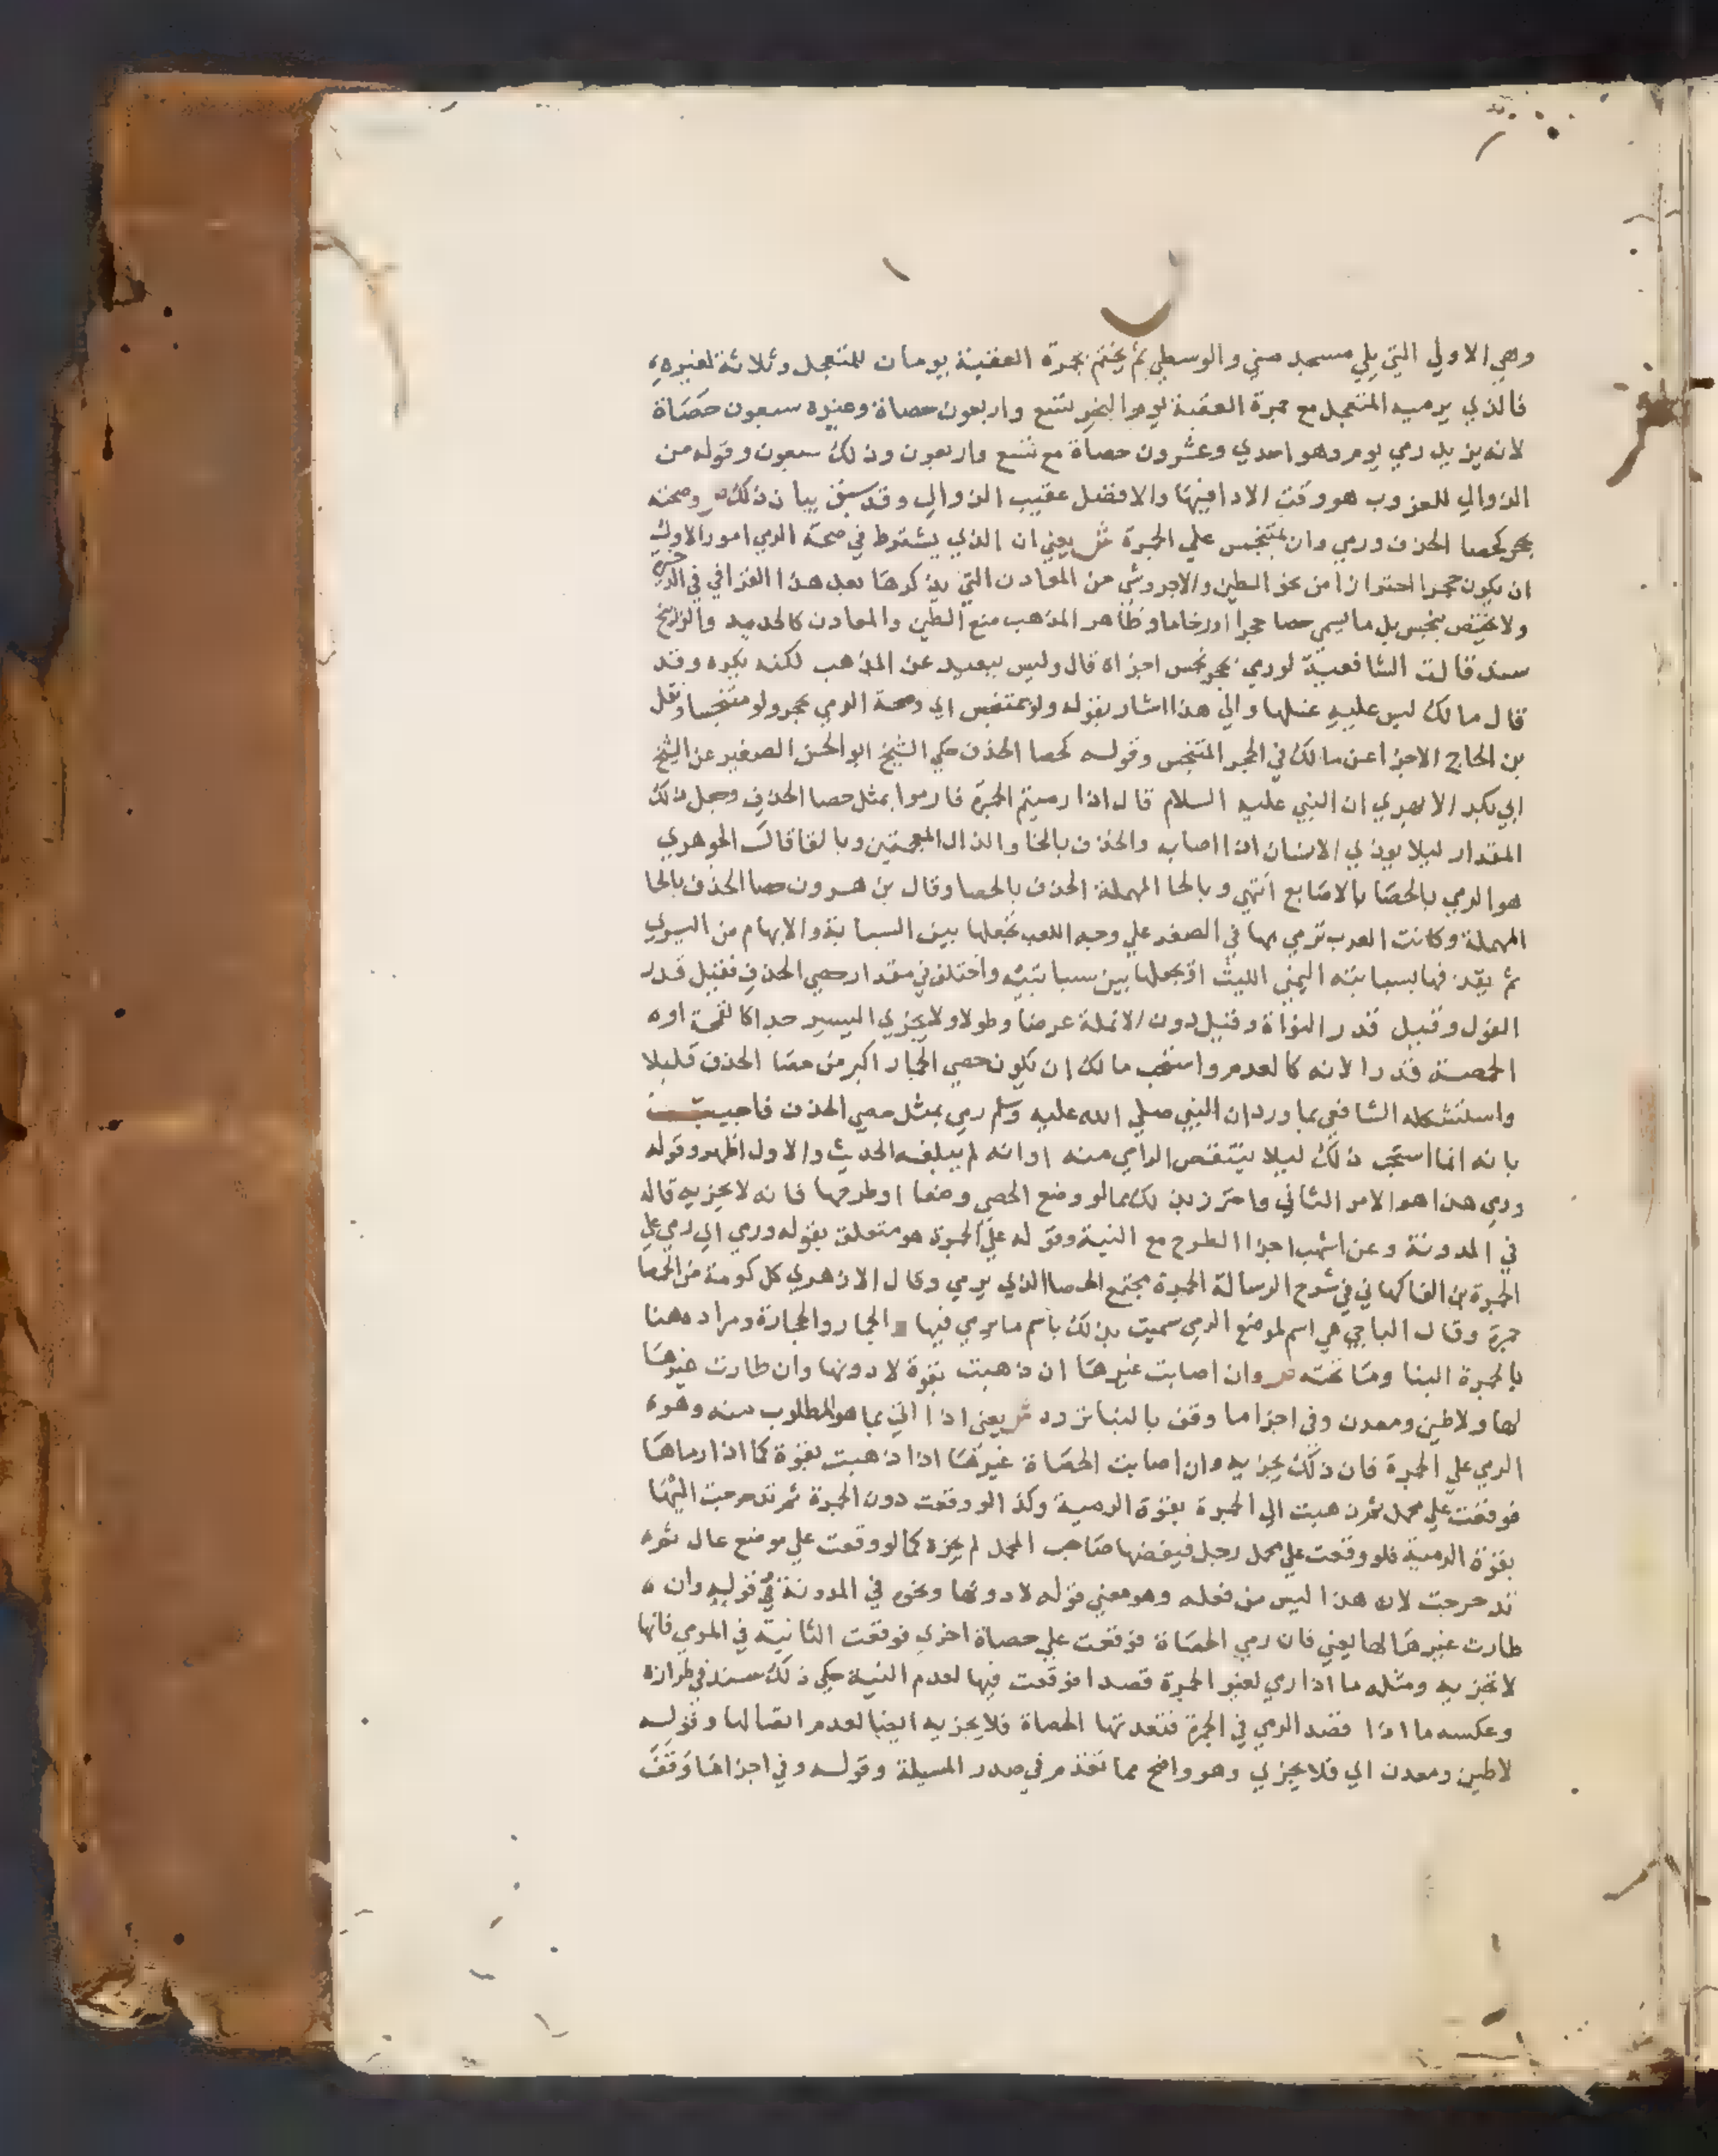 وهي الاولي التي يلي مسجد مني والوسطي ثم يختم بجمرة العقبة يومان للمتعجل وثلاثة لغيره
فالذي يرميه المتعجل مع جمرة العقبة يوم النحر تسع واربعون حصاة وغيره سبعون حصاة
لانه يزيد رمي يوم وهو احدي وعشرون حصاة مع تسع واربعون وذلك سبعون وقوله من
الزوالي للغروب هو وقت الادا فيها والافضل عقيب الزوال وقد سبق بيان ذلك ص وصحته
بحجر كحصا الخذف ورمي وان بمتنجس علي الجمرة ش يعني ان الذي يشترط في صحة الرمي امور الاول
ان يكون حجرا احترازا من نحو الطين والاجر وشي من المعادن التي يذكرها بعد هذا القرافي في الذخيرة
ولا يختص بجنس بل ما يسمي حصا حجرا او رخاما وظاهر المذهب منع الطين والمعادن كالحديد والزرنيخ
سند قالت الشافعية لو رمي بحجر نجس اجزاه قال وليس ببعيد عن المذهب لكنه يكره وقد
قال مالك ليس عليه غسلها والي هذا اشار بقوله ولو بمتنجس اي وصحة الرمي بحجر ولو متنجسا ونقل
بن الحاج الاجزا عن مالك في الحجر المتنجس وقوله كحصا الخذف حكي الشيخ ابو الحسن الصغير عن الشيخ
ابي بكر الابهري ان النبي عليه السلام قال اذا رميتم الجمرة فارموا بمثل حصا الخذف وجعل ذلك
المقدار ليلا يوذي الانسان اذا اصابه والخذف بالخا والذال المعجمتين وبالفا قال الجوهري
هو الرمي بالحصا بالاصابع انتهي وبالحا المهملة الحذف بالحصا وقال بن هرون حصا الحذف بالحا
المهملة وكانت العرب ترمي بها في الصغر علي وجه اللعب تجعلها بين السبابة والابهام من اليسري
ثم يقذفها بسبابته اليمني الليث او يجعلها بين سبابتيه واختلف في مقدار حصي الخذف فقيل قدر
الفول وقيل قدر النواة وقيل دون الانملة عرضا وطولا ولا يجزي اليسير جدا كالقمحة او
الحمصة قدرا لانه كالعدم واستحب مالك ان يكون حصي الجمار اكبر من حصا الخذف قليلا
واستشكله الشافعي بما ورد ان النبي صلي الله عليه وسلم رمي بمثل حصي الخذف فاجيب
بانه انما استحب ذلك ليلا ينتقص الرامي منه او انه لم يبلغه الحديث والاول اظهر وقوله
ورمي هذا هو الامر الثاني واحترز بذلك مما لو وضع الحصي وضعا او طرحها فانه لا يجزيه قاله
في المدونة وعن اشهب اجزا الطرح مع النية وقوله علي الجمرة هو متعلق بقوله ورمي اي رمي علي
الجمرة بن الفاكهاني في شرح الرسالة الجمرة مجتمع الحصا الذي يرمي وقال الازهري كل كومة من الحصا
جمرة وقال الباجي هي اسم لموضع الرمي سميت بذلك باسم ما يرمي فيها والجمار والحجارة ومراده هنا
بالجمرة البنا وما تحته ص وان اصابت غيرها ان ذهبت بقوة لا دونها وان طارت غيرها
لها ولا طين ومعدن وفي اجزا ما وقف بالبنا تردد ش يعني اذا اتي بما هو المطلوب منه وهو
الرمي علي الجمرة فان ذلك يجزيه وان اصابت الحصاة غيرها اذا ذهبت بقوة كما اذا رماها
فوقعت علي محمل ثم ذهبت الي الجمرة بقوة الرمية وكذا لو وقعت دون الجمرة ثم تدحرجت اليها
بقوة الرمية فلو وقعت علي محمل رجل فيفضها صاحب المحمل لم يجزه كما لو وقعت علي موضع عال ثم
تدحرجت لان هذا ليس من فعله وهو معني قوله لا دونها ونحوه في المدونة في قوليه وان
طارت غيرها لها يعني فان رمي الحصاة فوقعت علي حصاة اخري فوقعت الثانية في المرمي فانها
لا تجزيه ومثله ما اذا رمي لغير الجمرة قصدا فوقعت فيها لعدم النية حكي ذلك سند في طرازه
وعكسه ما اذا قصد الرمي في الجمرة فتعدتها الحصاة فلا يجزيه ايضا لعدم اتصالها وقوله
لا طين ومعدن اي فلا يجزي وهو واضح مما تقدم في صدر المسيلة وقوله وفي اجزا ما وقف